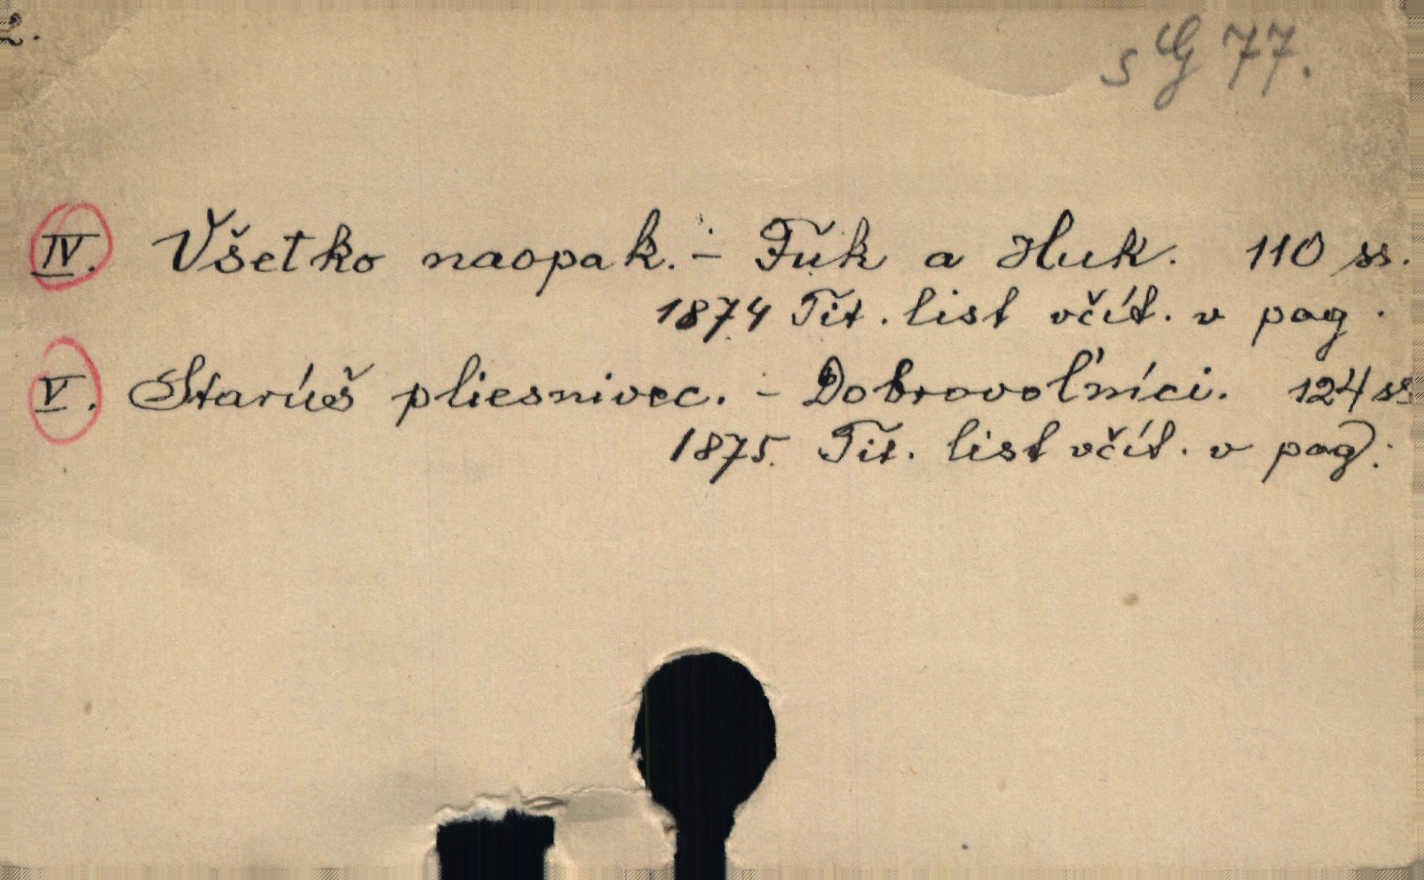 2.
s G 77.
IV. Všetko naopak. - Fuk a Huk. 110 ss.
1874 Tit. list včít. v pag.
V. Starúš pliesnivec. - Dobrovoľníci. 124 ss
1875. Tit. list včít. v pag.